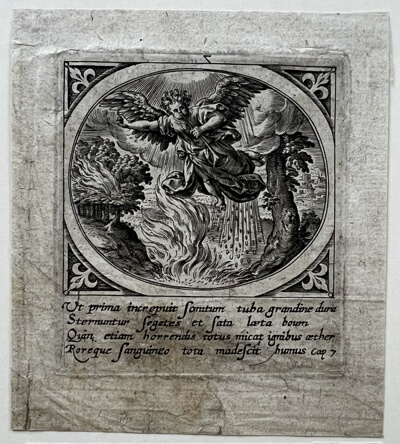 Ut prima increpuit sonitum tuba grandine dura
Sternuntur segetes et sata læta boum
Quin etiam horrendis totus micat ignibus æther
Roreque sanguineo tota madescit humus Cap 7